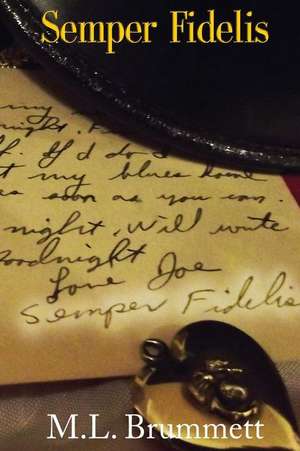 Semper Fidelis
my
night.
If I d
t my blues
s soon as you can.
night, Will write
Goodnight
Love Joe
Semper Fidelis
M.L. Brummett